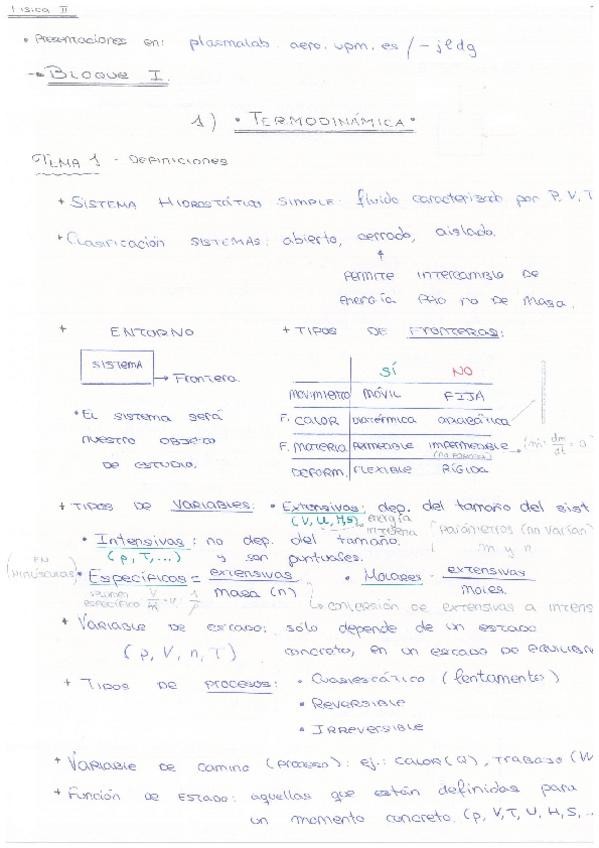 Física II
• Presentaciones en: plasmalab.aero.upm.es/~jldg
→ BLOQUE I.
1) • TERMODINÁMICA •
TEMA 1 - DEFINICIONES
+ SISTEMA HIDROSTÁTICO SIMPLE: fluido caracterizado por P, V, T
+ Clasificación SISTEMAS: abierto, cerrado, aislado.
PERMITE INTERCAMBIO DE
energía PERO NO DE MASA.
+ ENTORNO
SISTEMA
→ Frontera.
• EL SISTEMA SERÁ
NUESTRO OBJETO
DE ESTUDIO.
+ TIPOS DE FRONTERAS:
SÍ NO
MOVIMIENTO MÓVIL FIJA
F. CALOR DIATÉRMICA ADIABÁTICA
F. MATERIA PERMEABLE IMPERMEABLE → ṁ = dm/dt = 0
(NO POROSA)
DEFORM. FLEXIBLE RÍGIDA
+ TIPOS DE VARIABLES: • Extensivas: dep. del tamaño del sist
(V, U, H, S) → energía interna
• Intensivas: no dep. del tamaño.
(p, T, ...) y son puntuales.
(parámetros (no varían)
m y n
(EN MINÚSCULAS) • Específicas = extensivas / masa (m)
volumen específico V/m = v = 1/ρ
• Molares = extensivas / moles
↳ conversión de extensivas a intens
+ VARIABLE DE ESTADO: sólo depende de un estado
(p, V, n, T) concreto, en un estado DE EQUILIBR
+ TIPOS DE PROCESOS: • Cuasiestático (lentamente)
• REVERSIBLE
• IRREVERSIBLE
+ VARIABLE DE CAMINO (PROCESO): ej.: CALOR (Q), TRABAJO (W
+ FUNCIÓN DE ESTADO: aquellas que están definidas para
un momento concreto. (p, V, T, U, H, S, ..